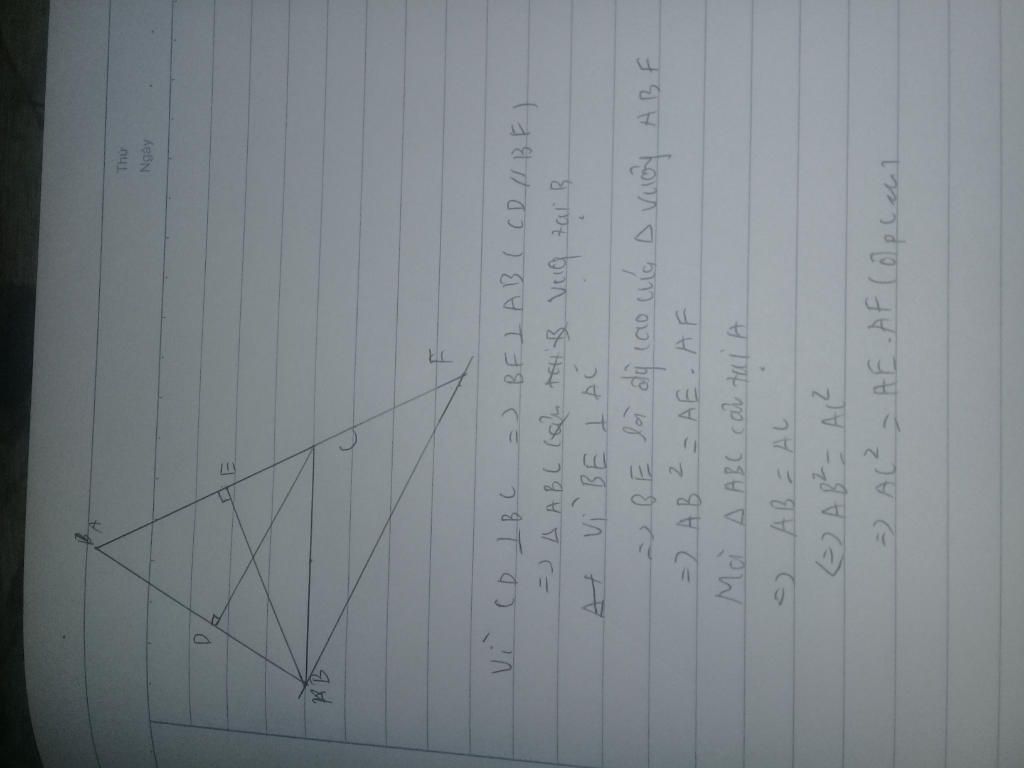 Thứ
Ngày
A
D
E
B
C
F
Vì CD ⊥ BC => BF ⊥ AB ( CD // BF )
=> Δ ABC vuông tại B
Vì BE ⊥ AC
=> BE là đg cao của Δ vuông ABF
=> AB² = AE . AF
Mà Δ ABC cân tại A
=> AB = AC
(=) AB² = AC²
=> AC² = AE . AF (đpcm)